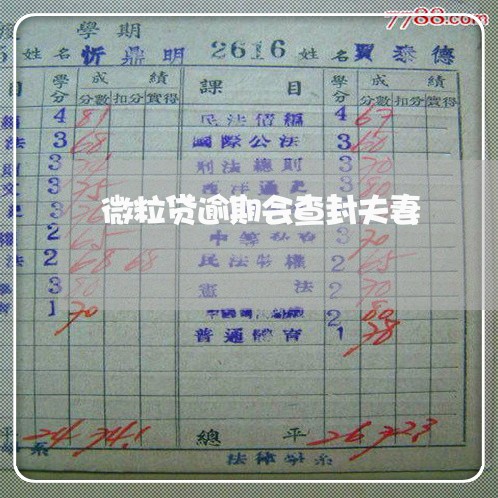 7788.com
學期
姓名 忻鼎明 2616 姓名 賈泰德
目 學分 成績 課目 學分 成績
分數 扣分 實得 分數 扣分 實得
4 81 民法債編 4 67
法 3 68 國際公法 3 60
3 刑法總則 3 70
文 3 75 西洋通史 3 80
微粒贷逾期会查封夫妻
2 65 3 70
法 2 68 68 民法物權 2 65
3 80 憲法 2 70
1 70 2 80
普通體育 1 78
平 24 74.1 總平 26 72.3
系 法律學系